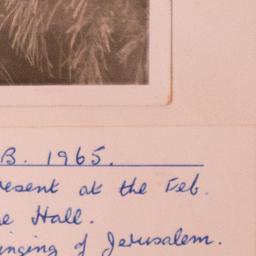 B. 1965.
resent at the Feb.
e Hall.
inging of Jerusalem.